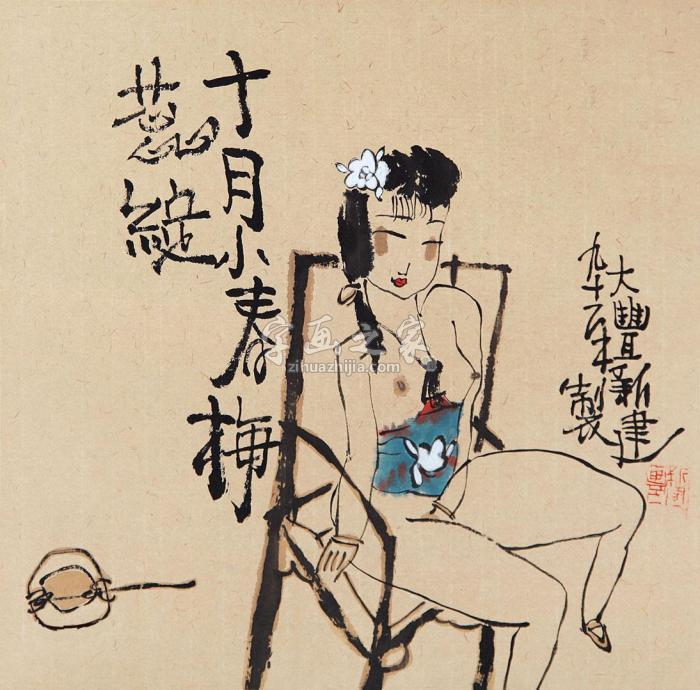 十月小春梅
蕊綻
大豐新建
製
字画之家
zihuazhijia.com